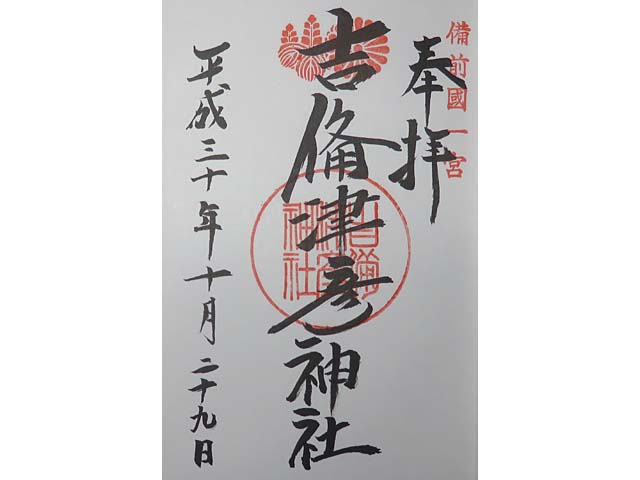 備前國一宮
奉拝
吉備津彦神社
吉備
津彦
神社
平成三十年十月二十九日